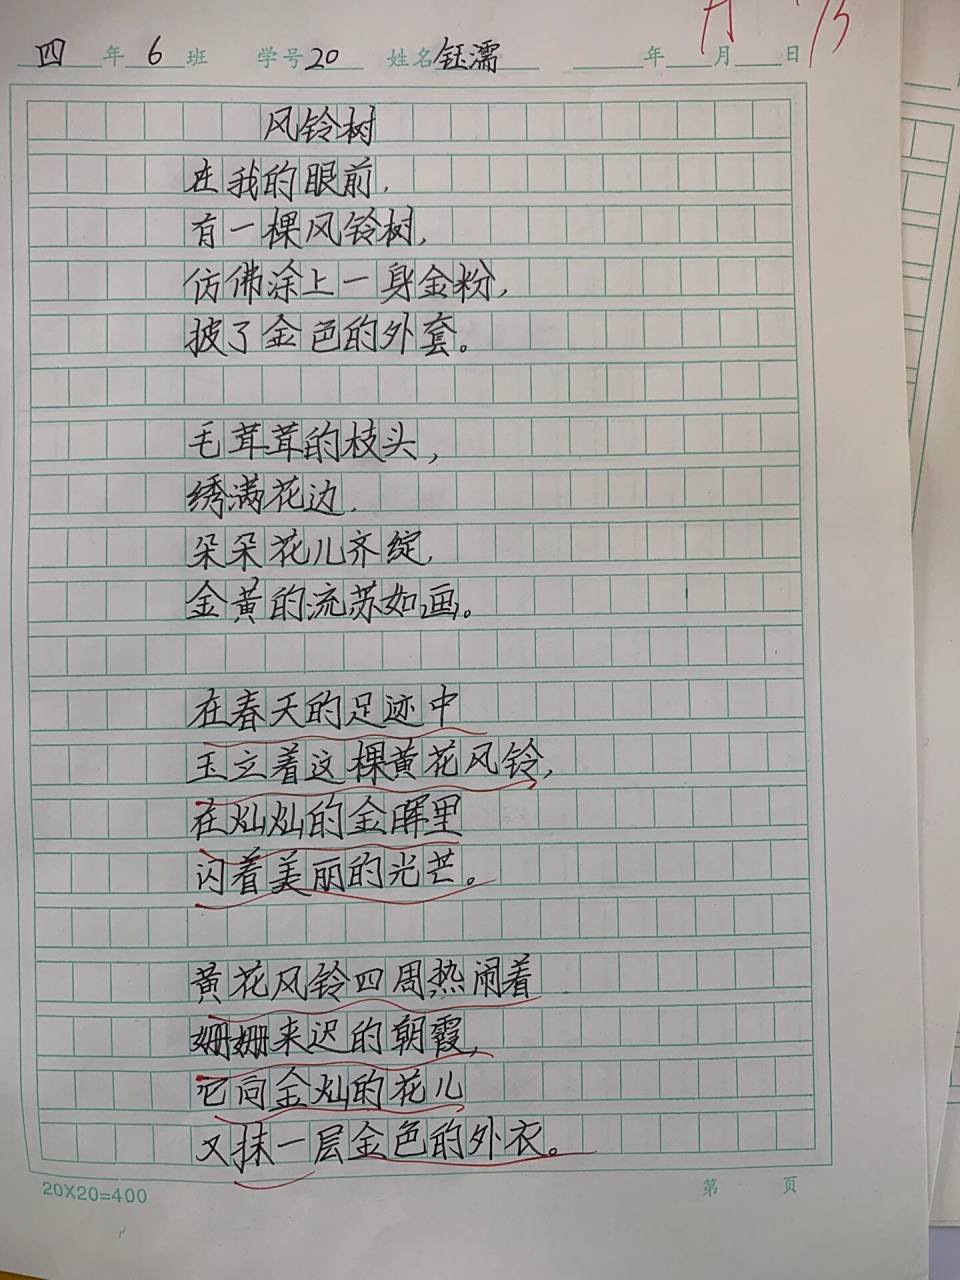 四年6班 学号20 姓名钰濡 年 月 日
风铃树
在我的眼前,
有一棵风铃树,
仿佛涂上一身金粉,
披了金色的外套。
毛茸茸的枝头,
绣满花边.
朵朵花儿齐绽,
金黄的流苏如画。
在春天的足迹中
玉立着这棵黄花风铃,
在灿灿的金晖里
闪着美丽的光芒。
黄花风铃四周热闹着
姗姗来迟的朝霞,
它向金灿的花儿
又抹一层金色的外衣。
20X20=400 第 页